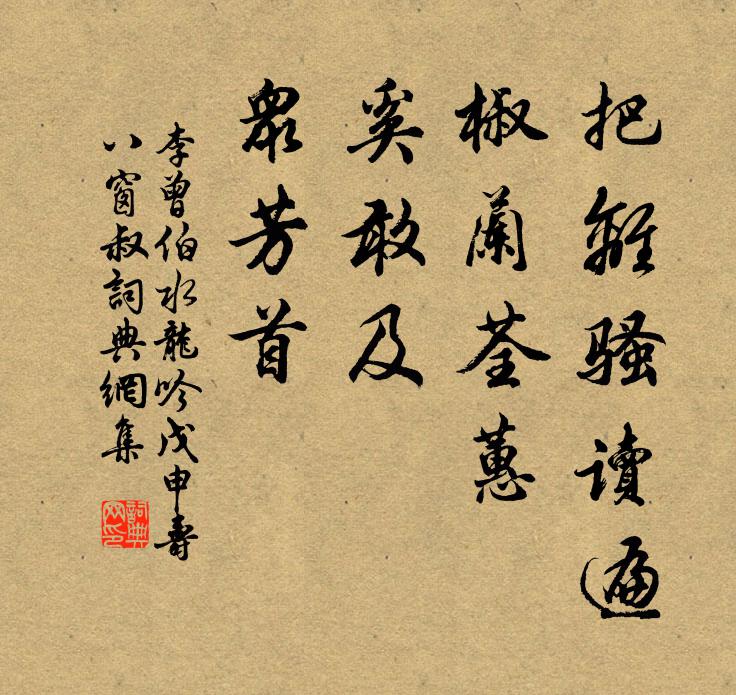 把離騷讀遍
椒蘭荃蕙
奚敢及
眾芳首
李曾伯水龍吟戊申壽
八窗叔詞典網集
詞典
网印